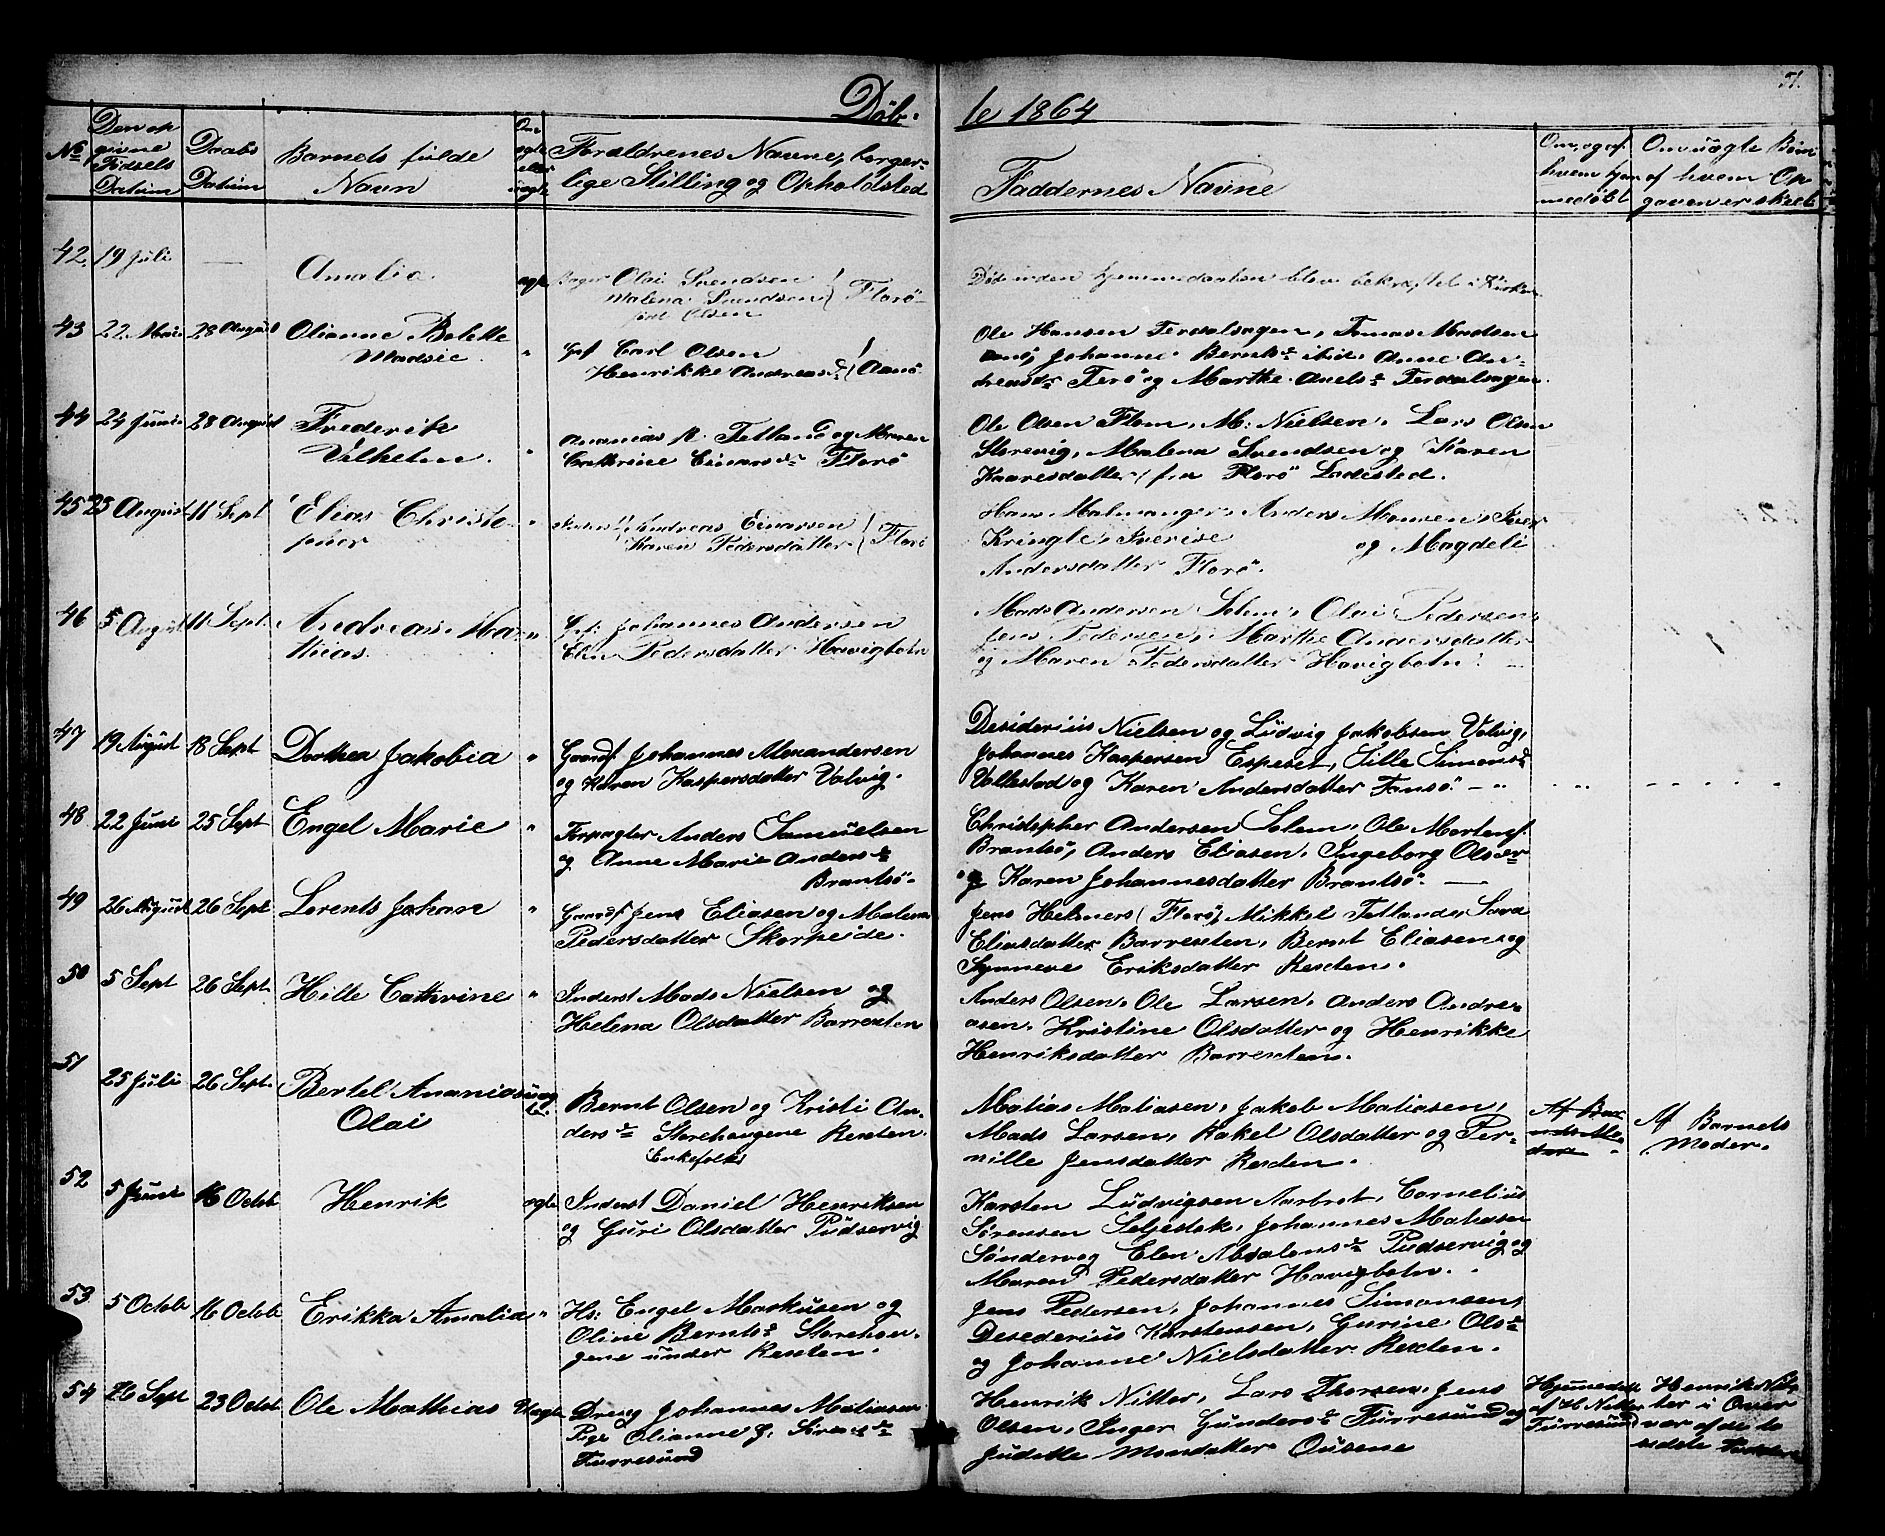 Døb-
te 1864
51.
No
Den op
givne
Fødsels
Datum
Daabs
Datum
Barnets fulde
Navn
Om
ægte
eller
uægte
Forældrenes Navne, borger-
lige Stilling og Opholdsted
Faddernes Navne
Om, og af
hvem hjem
medøbt
Om uægte Børn
af hvem Op
gaven er skeet
42. 19 Juli —
Amalia
ægte
Olai Svendsen
Malena Svendsen
født Olsen
Florö
Død inden hjemmedaaben blev bekræftet i Kirken
43 22 Mai 28 August
Olianne Bolette
Madsie.
"
Carl Olsen
Henrikke Andreasdr
Aanö
Ole Hansen Ferdalsøgen, Tomas Madsen
Johanne Berntsdr ibid. Anne An-
dreasdr Terö og Marthe Axelsdr Ferdalsøgen.
44 24 Juni 28 August
Frederik
Vilhelm.
"
Ananias R. Tetland og Maren
Cathrine Einarsdr Florö
Ole Olsen Flom, M. Nielsen, Lars Olsen
Storevig, Malena Svendsen og Karen
Kaaresdatter fra Florö Ladested.
45 23 August 11 Sept
Elias Christo
pher
"
Andreas Einarsen
Karen Pedersdatter
Florö
Hans Malmanger, Anders Monsen, Iver
Kringle, og Magdeli
Andersdatter Florö.
46 5 August 11 Sept.
Andreas Mat
thias.
"
Johannes Andersen
Elen Pedersdatter Havigbotn
Mads Andersen Solem, Olai Pedersen,
Jens Pedersen, Marthe Andersdatter
og Maren Pedersdatter Havigbotn.
47 19 August 18 Sept
Dorthea Jakobia
"
Gaardf Johannes Alexandersen
og Karen Kaspersdatter Valvig.
Desiderius Nielsen og Ludvig Jakobsen Valvig,
Johannes Kaspersen Espeset, Sille Simonsdr
Vallestad og Karen Andersdatter Fansö.
48 22 Juni 25 Sept
Engel Marie
"
Forpagter Anders Samuelsen
og Anne Marie Andersdr
Brantsö.
Christopher Andersen Solem, Ole Mortensf.
Brantsö, Anders Eliasen, Ingeborg Olsdr
og Karen Johannesdatter Brantsö. —
49 26 August 26 Sept
Lorents Johan
"
Gaardf Jens Eliasen og Malena
Pedersdatter Skorpeide.
Jens Helmers (Florö), Mikkel Tetland, Sara
Eliasdatter Barrexten, Bernt Eliasen og
Synneve Eriksdatter Rexten.
50 5 Sept 26 Sept.
Hille Cathrine
"
Inderst Mads Nielsen og
Helena Olsdatter Barrexten
Anders Olsen, Ole Larsen, Anders Andre-
asen, Kristine Olsdatter og Henrikke
Henriksdatter Barrexten.
51 25 Juli 26 Sept.
Bertel Ananias
Olai
uæg
te
Bernt Olsen og Kristi An-
dersdr Storehaugene Rexten.
Enkefolk
Matias Matiasen, Jakob Matiasen,
Mads Larsen, Rakel Olsdatter og Per-
nille Jensdatter Rexten.
Af Bar
nets Mo
der
Af Barnets
Moder.
52 5 Juni 16 Octob
Henrik
ægte
Inderst Daniel Henriksen
og Guri Olsdatter Pudservig
Karsten Ludvigsen Aarbrot, Cornelius
Sørensen Seljestok, Johannes Matiasen
Sønderv og Elen Absalonsdr Pudservig og
Maren Pedersdatter Havigbotn.
53 5 Octob 16 Octob
Erikka Amalia
"
Hs: Engel Markusen og
Oline Berntsdr Storehau-
gene under Rexten.
Jens Pedersen, Johannes Simonsen,
Desederius Karstensen, Gurine Olsdr
og Johanne Nielsdatter Rexten.
54 26 Sept 23 Octob
Ole Mathias
Uægte
Dreng Johannes Matiassen
Pige Olianne J. Sivertsdr
Furresund
Henrik Nitter, Lars Thorsen, Jens
Olsen, Inger Gundersdr Furresund og
Judette Monsdatter Ousene
Hjemmedøbt
af H Nitter
Furresund
Henrik Nit-
ter i Over
vær af de to
sidste Faddere